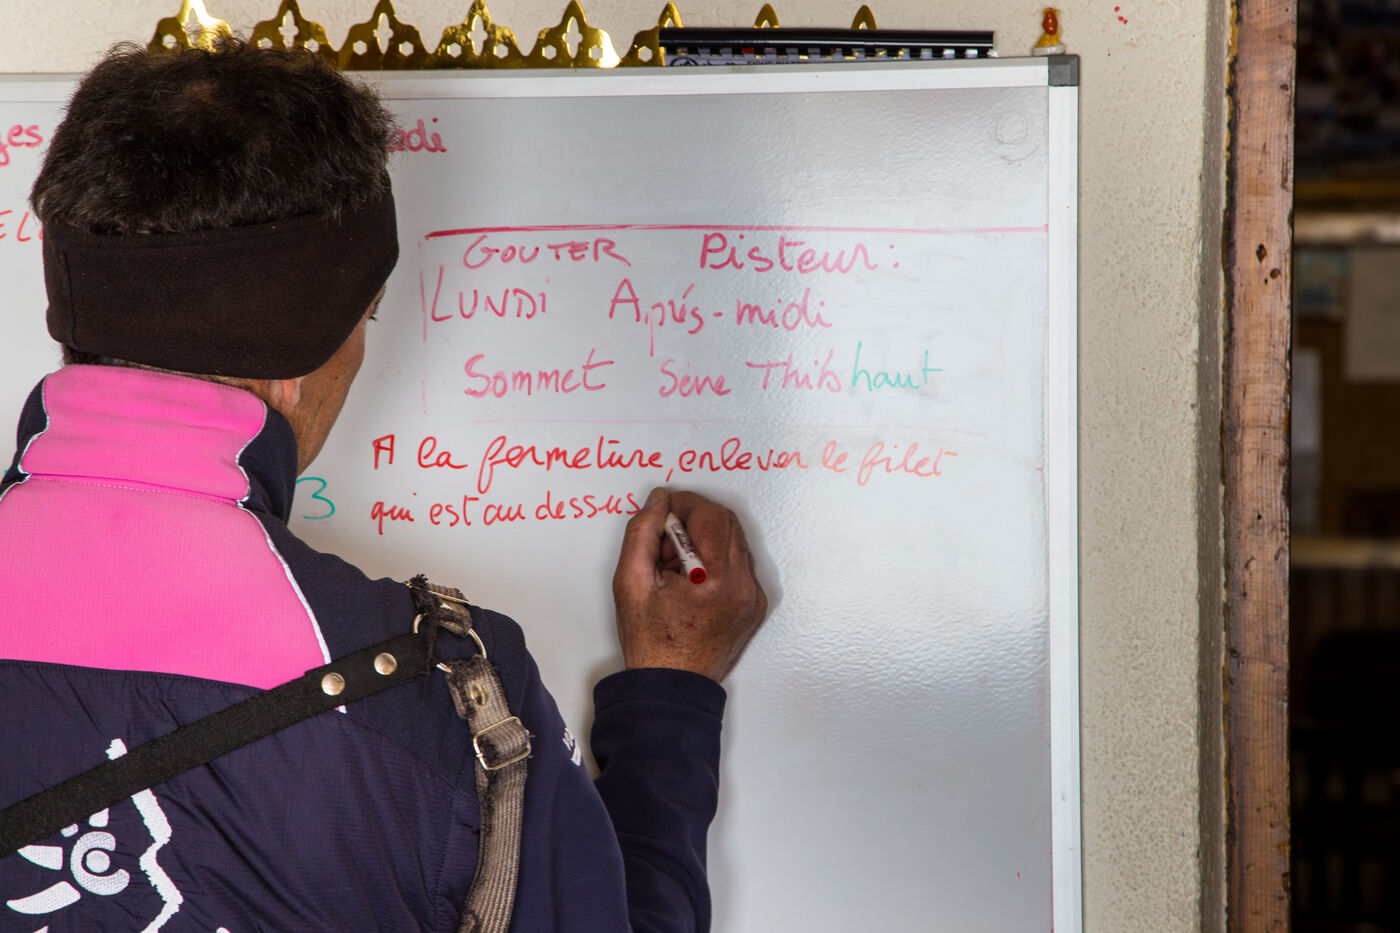 GOUTER Pisteur:
LUNDi Après-midi
Sommet Sève Thibhaut
A la fermeture, enlever le filet
3
qui est au dessus